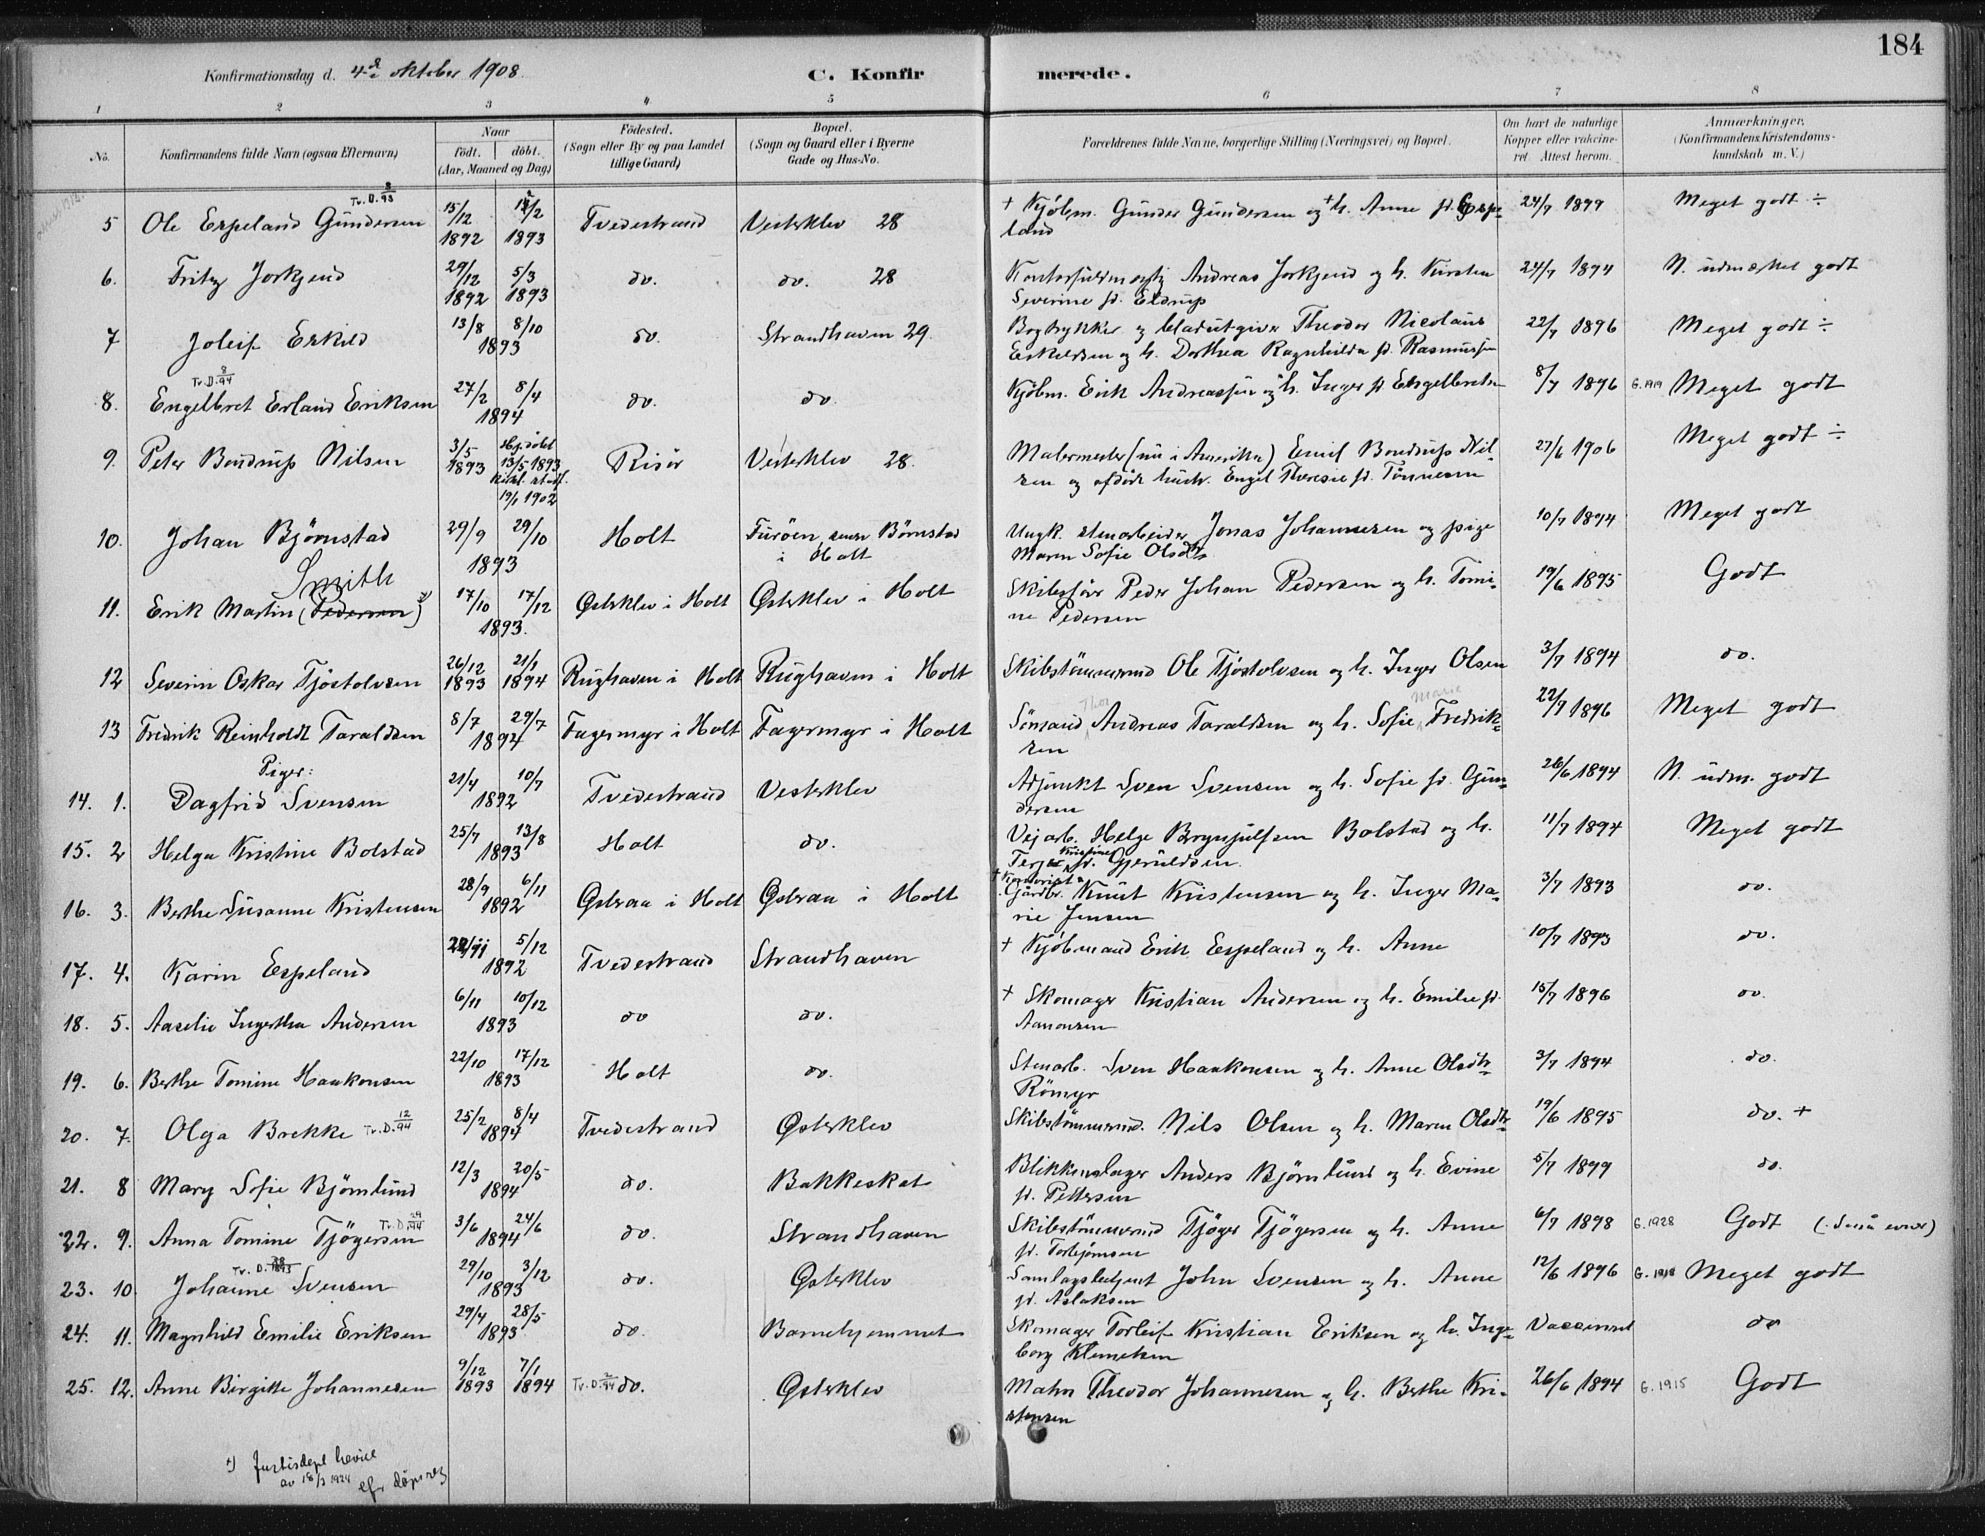 184
Konfirmationsdag d. 4de oktober 1908. C. Konfirmerede.
1 2 3 4 5 6 7 8
No. Konfirmandens fulde Navn (ogsaa Efternavn) Naar födt. döbt. (Aar, Maaned og Dag) Födested. (Sogn eller By og paa Landet tillige Gaard) Bopæl. (Sogn og Gaard eller i Byerne Gade og Hus-No. Forældrenes fulde Navne, borgerlige Stilling (Næringsvei) og Bopæl. Om havt de naturlige Kopper eller vakcineret. Attest herom. Anmærkninger. (Konfirmandens Kristendomskundskab m. V.)
Tv.D. 8/93
5 Ole Espeland Gundersen 15/12 1892 12/2 1893 Tvedestrand Vesterklev 28 + Kjöbm. Gunder Gundersen og + h. Anne f. Espe- 24/7 1899 Meget godt ÷
land
6. Fritz Jorkjend 29/12 1892 5/3 1893 do. do. 28 Kontorfuldmægtig Andreas Jorkjend og h. Kirsten 24/7 1894 N. udmærket godt
Severine f. Eldrup
7 Joleif Eskild 13/8 8/10 1893 do. Strandhaven 29. Bogtrykker og bladutgiver Theodor Nicolaus 22/7 1896 Meget godt ÷
Eskildsen og h. Dorthea Ragnhilda f. Rasmussen
Tv.D. 8/94
8. Engelbret Erland Eriksen 27/2 8/4 1894 do. do. Kjöbm. Erik Andreassen og h. Inger f. Engelbretsen 8/7 1896 G. 1919 Meget godt
9. Peter Bondrup Nilsen 3/5 1893 Hj. döbt 13/5 1893 1902 Risör Vesterklev 28. Malermester (nu i Amerika) Emil Bondrup Nil- 27/6 1906 Meget godt ÷
sen og afdöde hustr. Engel Theresie f. Tönnesen
10. Johan Bjørnstad 29/9 29/10 1893 Holt Furöen, Børnstad i Holt Ungk. stenarbeider Jonas Johannesen og pige 10/7 1894 Meget godt
Maren Sofie Olsdtr
Smith
11. Erik Martin (Pedersen) x) 17/10 17/12 1893. Østerklev i Holt Østerklev i Holt Skibsförer Peder Johan Pedersen og h. Tomi- 19/6 1895 Godt
ne Pedersen
12 Severin Oskar Tjöstolvsen 26/12 1893 21/1 1894 Rughaven i Holt Rughaven i Holt Skibstömmermd Ole Tjöstolvsen og h. Inger Olsen 3/7 1894 do.
Thor Marie
13 Fredrik Reinholdt Taraldsen 8/7 29/7 1894 Fagermyr i Holt Fagermyr i Holt Sömand Andreas Taraldsen og h. Sofie Fredrik- 22/7 1896 Meget godt
sen
Piger:
14. 1. Dagfrid Svensen 21/4 10/7 1892 Tvedestrand Vesterklev Adjunkt Sven Svensen og h. Sofie f. Gun- 26/6 1894 N. udm. godt
dersen
15. 2 Helga Kristine Bolstad 25/7 13/8 1893 Holt do. Vejarb. Helge Brynjulfsen Bolstad og h. 11/7 1894 Meget godt
Terje Kristine f. Gjeruldsen.
+ Kontorist &
16. 3. Berthe Susanne Kristensen 28/9 6/11 1892 Østeraa i Holt Østeraa i Holt Gårdbr. Knut Kristensen og h. Inger Ma- 3/7 1893 do.
rie Jensen
17. 4. Karin Espeland 22/11 5/12 1892 Tvedestrand Strandhaven + Kjöbmand Erik Espeland og h. Anne 10/7 1893 do.
18. 5. Aaselie Ingertha Andersen 6/11 10/12 1893 do do. + Skomager Kristian Andersen og h. Emilie f. 15/7 1896 do.
Aanonsen
19. 6. Berthe Tomine Haakonsen 22/10 17/12 1893 Holt do. Stenarb. Sven Haakonsen og h. Anne Olsdtr 3/7 1894 do.
Römyr
20. 7. Olga Brekke Tv.D. 12/94 25/2 8/4 1894 Tvedestrand Østerklev Skibstömmermd. Nils Olsen og h. Maren Olsdtr 19/6 1895 do. +
21. 8 Mary Sofie Bjørnlund 12/3 20/5 1894 do. Bakkeskot Blikkenslager Anders Bjørnlund og h. Evine 5/7 1899 do.
f. Pettersen
22. 9. Anna Tomine Tjögersen Tv.D. 29/94 3/6 24/6 1894 do. Strandhaven Skibstömmermd Tjöger Tjögersen og h. Anne 6/7 1898 G. 1928 Godt (. Små evner)
f. Torbjørnsen
Tv. D. 28/1893
23. 10 Johanne Svensen 29/10 3/12 1893 do. Østerklev Samlagsbetjent John Svensen og h. Anne 12/6 1896 G. 1918 Meget godt
f. Aslaksen
24. 11. Magnhild Emilie Eriksen 29/4 28/5 1893 do. Barnehjemmet Skomager Torleif Kristian Eriksen og h. Inge- Vaccineret do
borg Klemetsen
25. 12. Anne Birgitte Johannesen 9/12 1893 7/1 1894 Tv.D. 2/94 do. Østerklev Matr. Theodor Johannesen og h. Berthe Kri- 26/6 1894 G. 1915 Godt
stensen
x) Justisdept bevill
av 18/3 1924 cfr. döpsreg